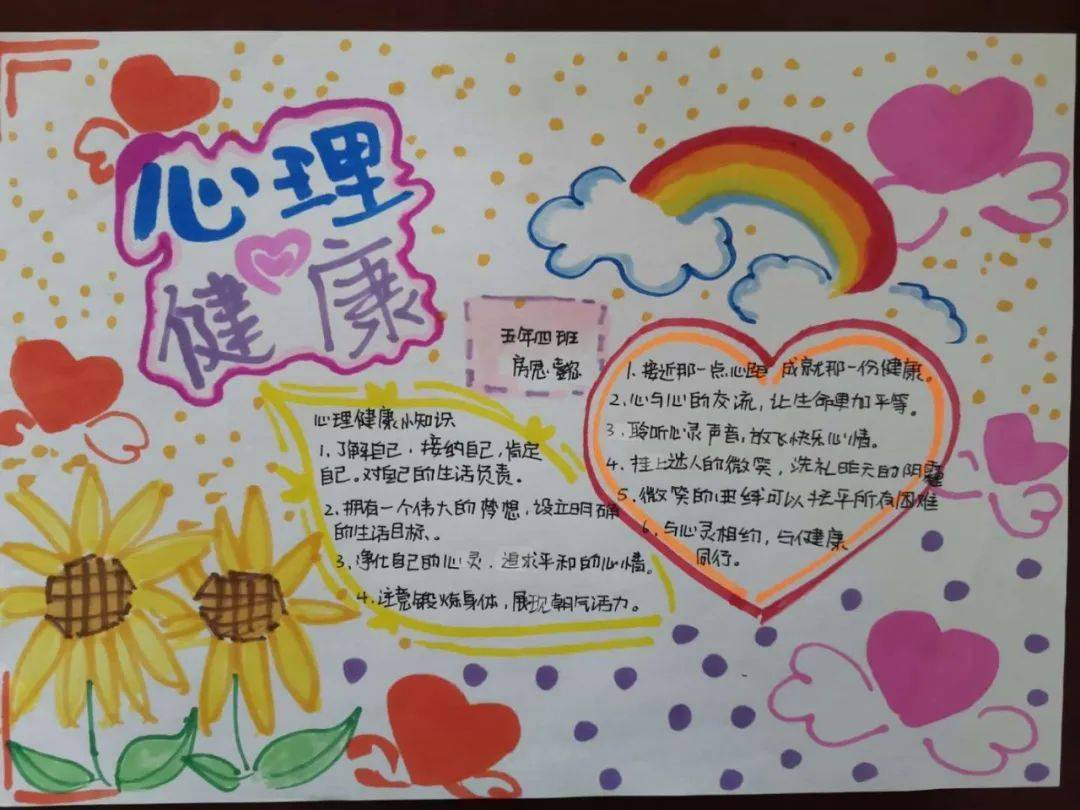 心理
健康
五年四班
房思
心理健康小知识
1、了解自己，接纳自己，肯定
自己。对自己的生活负责。
2、拥有一个伟大的梦想，设立明确
的生活目标、。
3、净化自己的心灵、追求平和的心情。
4、注意锻炼身体，展现朝气活力。
1、接近那一点心距 成就那一份健康。
2、心与心的交流，让生命更加平等。
3、聆听心灵声音，放飞快乐心情。
4、挂上迷人的微笑，洗礼昨天的阴霾
5、微笑的曲线可以抚平所有困难
6、与心灵相约，与健康
同行。